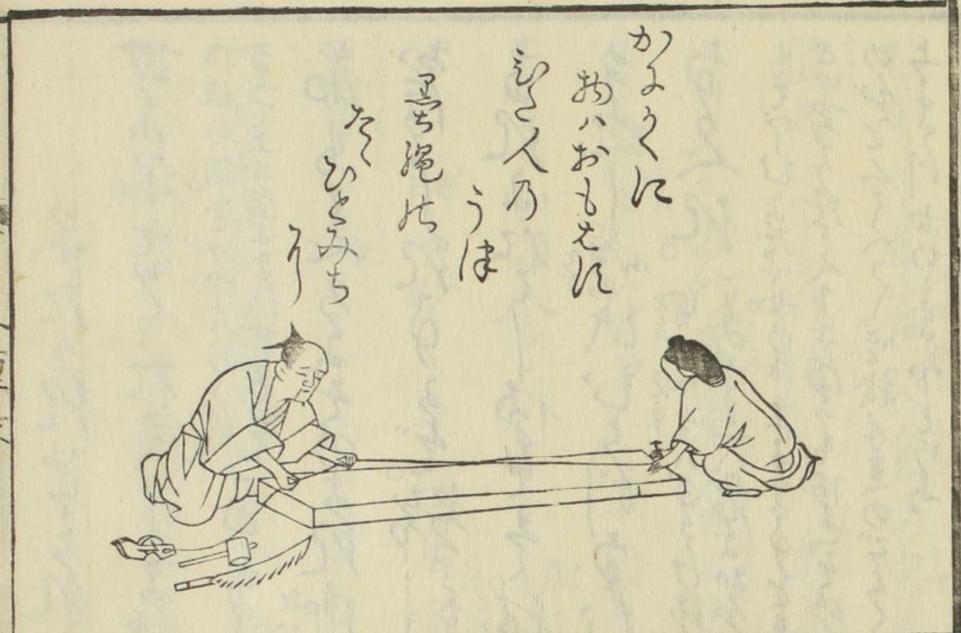 かにかくに
物ハおもはす
ひた人乃
うつ
墨縄の
たゝ
ひとみち
に